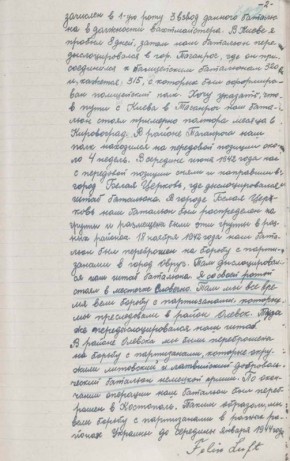 -2-
зачислен в 1-ую роту 3 взвод данного батальо-
на в должности вахтмайстера. В Киеве я
пробыл 3 дней, затем наш батальон пере-
дислоцировался в гор Таганрог, где он при-
соединился к полицейским батальонам 320
и, кажется, 315, с которыми был сформиро-
ван полицейский полк. Хочу указать, что
в пути с Киева в Таганрог наш бата-
льон стоял примерно полтора месяца в
Кировоград. В районе Таганрога наш
полк находился на передовой позиции око-
ло 4 недель. В середине июня 1942 года нас
с передовой позиции сняли и направили в
город Белая Церковь, где дислоцировался
штаб батальона. В городе Белая Цер-
ковь наш батальон был распределен на
группы и размещены были эти группы в раз-
ных районах. 15 ноября 1942 года наш бата-
льон был переброшен на борьбу с парти-
занами в город Овруч. Там дислоцировал-
ся наш штаб батальона. Я со своей ротой
стоял в местечке Словечно. Там мы все вре-
мя вели борьбу с партизанами, которых
мы преследовали в район Олевск. Туда
же передислоцировался наш штаб.
В район Олевска мы были переброшены
на борьбу с партизанами, которые окру-
жили литовский и латвийский доброволь-
ческий батальон немецкой армии. По окон-
чании операции наш батальон был перебро-
шен в Костополь. Таким образом, мы
вели борьбу с партизанами в разных ра-
йонах Украины до середины января 1944 года.
Felix Luft